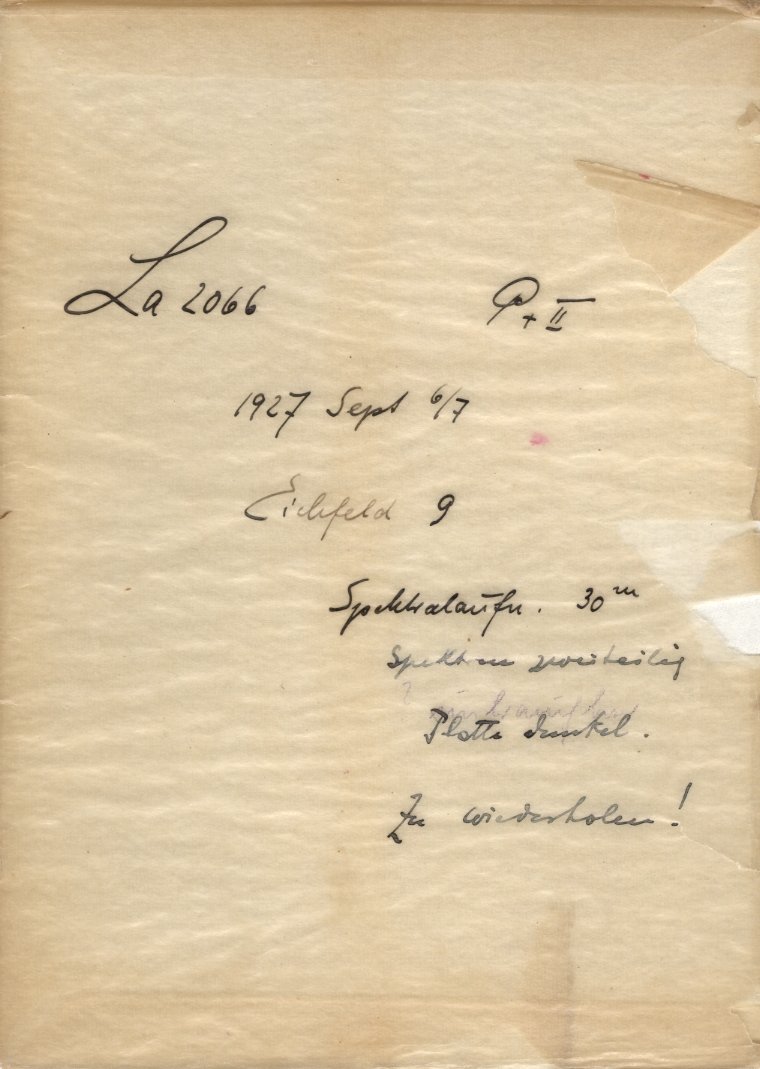 La 2066 P + II
1927 Sept 6/7
Eichfeld 9
Spektralaufn. 30ᵐ
Spektren zweiteilig
?
Platte dunkel.
Zu wiederholen!